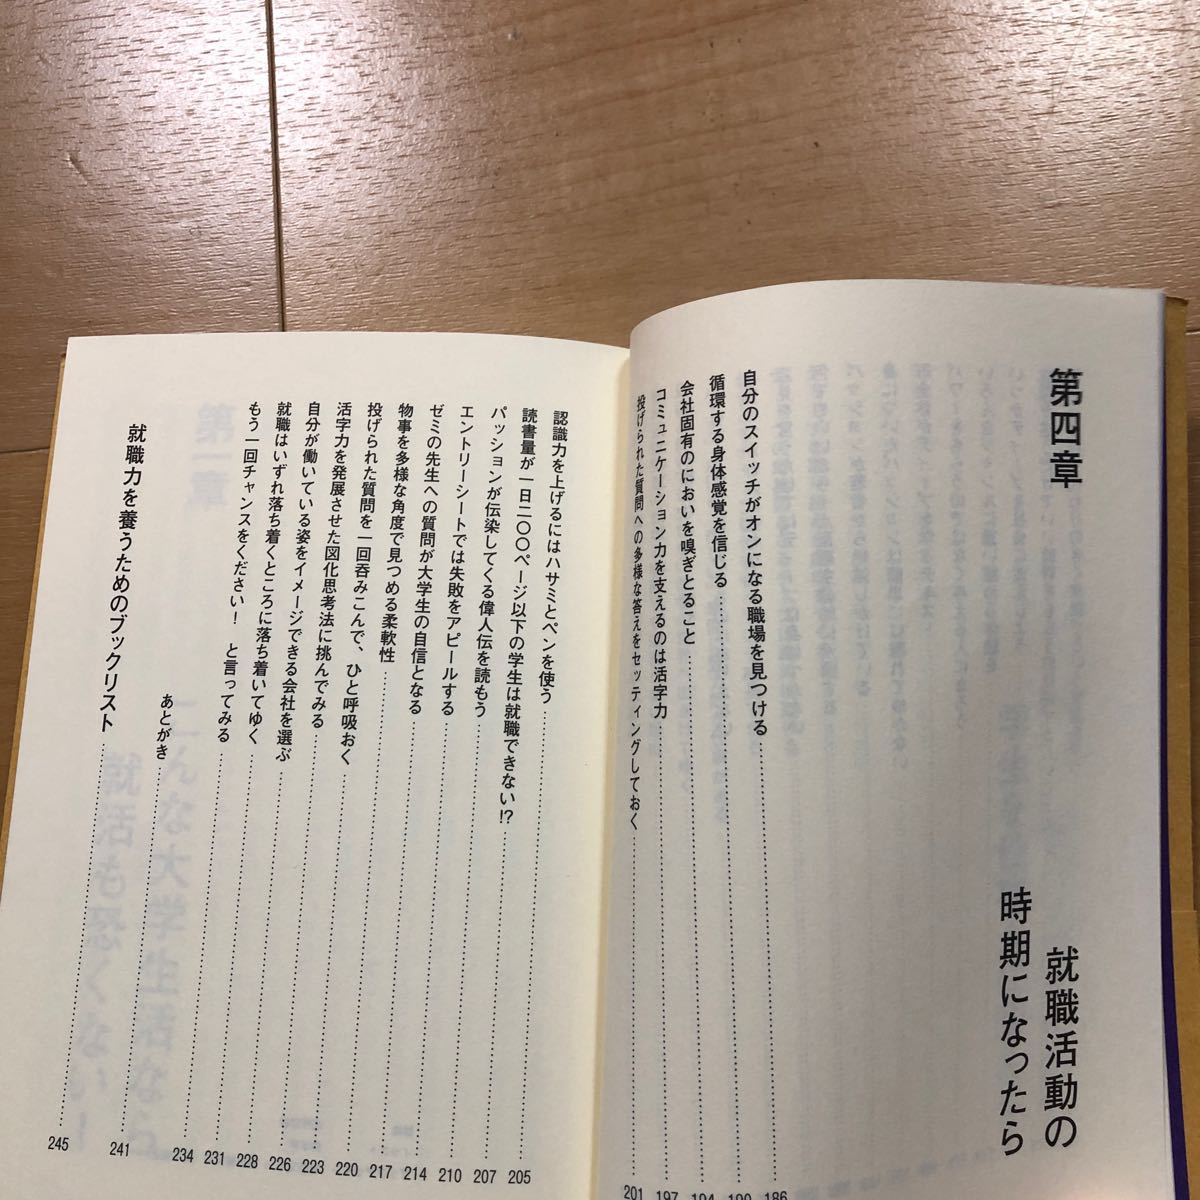 第四章
就職活動の
時期になったら
自分のスイッチがオンになる職場を見つける 186
循環する身体感覚を信じる 190
会社固有のにおいを嗅ぎとること 194
コミュニケーション力を支えるのは活字力 197
投げられた質問への多様な答えをセッティングしておく 201
認識力を上げるにはハサミとペンを使う 205
読書量が一日二〇〇ページ以下の学生は就職できない!? 207
パッションが伝染してくる偉人伝を読もう 210
エントリーシートでは失敗をアピールする 214
ゼミの先生への質問が大学生の自信となる 217
物事を多様な角度で見つめる柔軟性 220
投げられた質問を一回呑みこんで、ひと呼吸おく 223
活字力を発展させた図化思考法に挑んでみる 226
自分が働いている姿をイメージできる会社を選ぶ 228
就職はいずれ落ち着くところに落ち着いてゆく 231
もう一回チャンスをください！　と言ってみる 234
あとがき 241
就職力を養うためのブックリスト 245